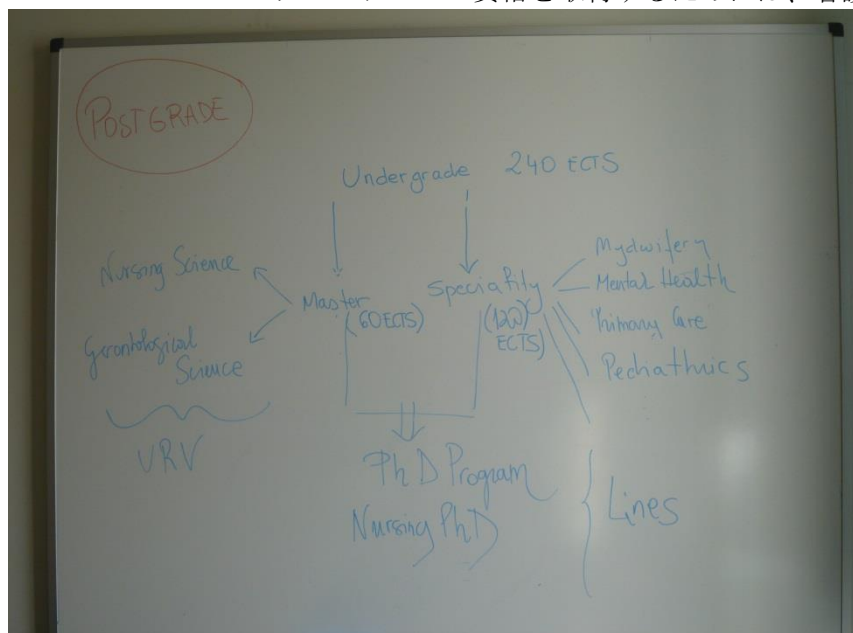 POSTGRADE
Undergrade 240 ECTS
Nursing Science
Gerontological
Science
URV
Master
(60 ECTS)
Speciality
(120
ECTS)
Mydwifery
Mental Health
Primary Care
Pediathrics
PhD Program
Nursing PhD
Lines